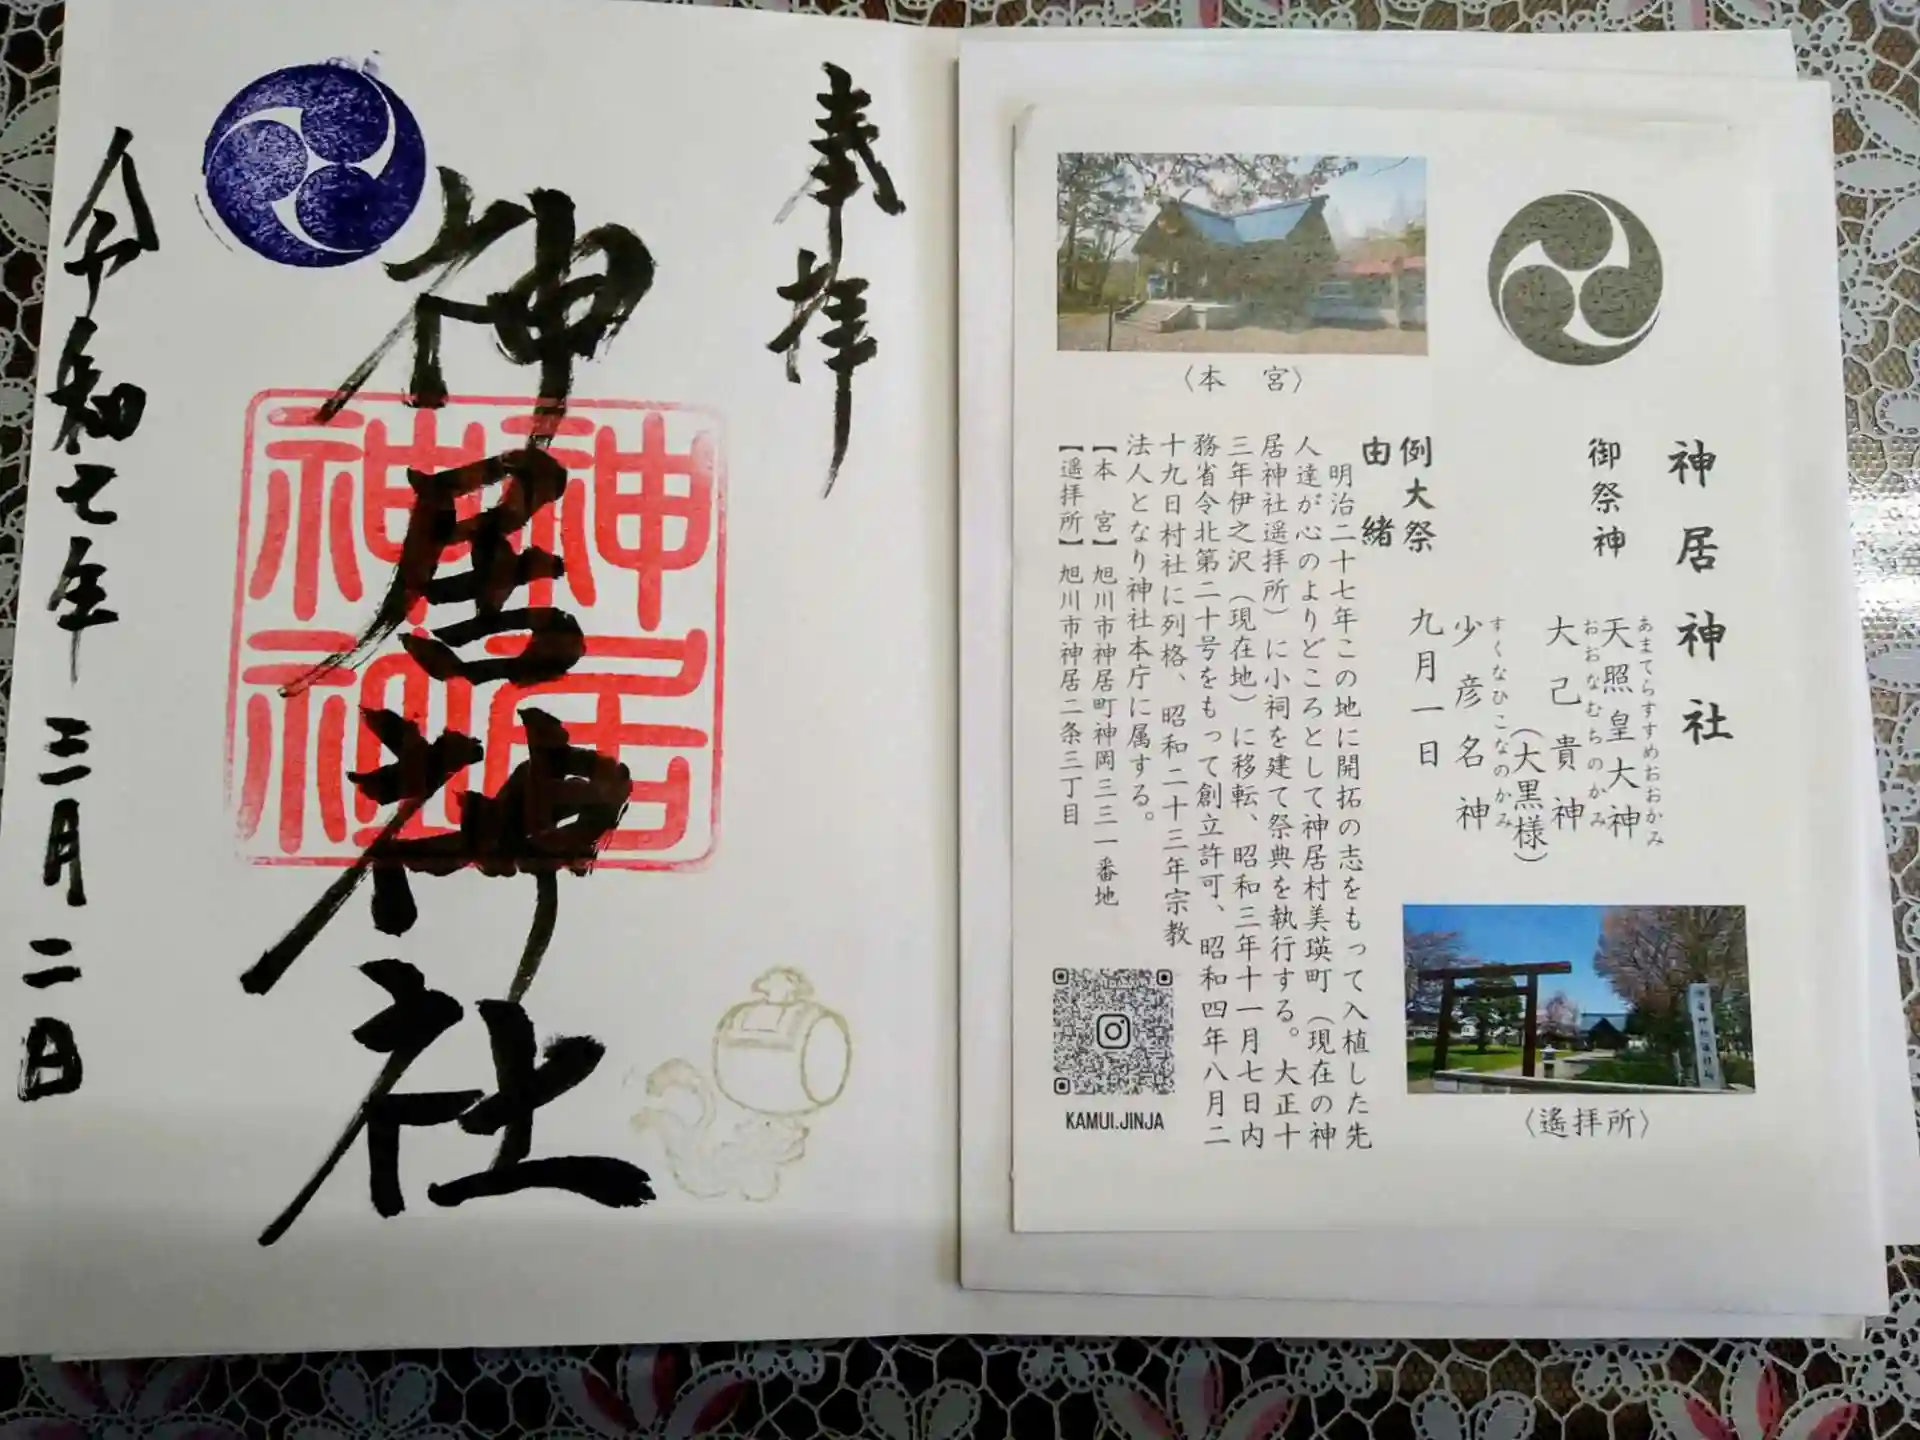 奉拝
神居神社
令和七年三月二日
神居
神社
神居神社
御祭神
あまてらすすめおおかみ
天照皇大神
おおなむちのかみ
大己貴神
(大黒様)
すくなひこなのかみ
少彦名神
例大祭 九月一日
由緒
明治二十七年この地に開拓の志をもって入植した先
人達が心のよりどころとして神居村美瑛町(現在の神
居神社遥拝所)に小祠を建て祭典を執行する。大正十
三年伊之沢(現在地)に移転、昭和三年十一月七日内
務省令北第二十号をもって創立許可、昭和四年八月二
十九日村社に列格、昭和二十三年宗教
法人となり神社本庁に属する。
【本 宮】旭川市神居町神岡三三一番地
【遥拝所】旭川市神居二条三丁目
〈本 宮〉
〈遙拝所〉
KAMUI.JINJA